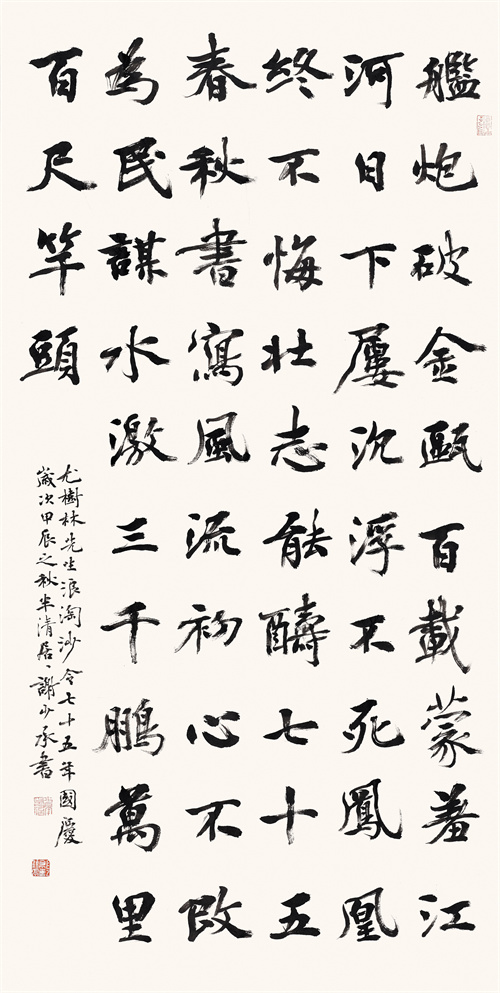 艦炮破金甌百載蒙羞江
河日下屢沉浮不死鳳凰
終不悔壯志能醻七十五
春秋書寫風流初心不改
為民謀水激三千鵬萬里
百尺竿頭
尤樹林先生浪淘沙令七十五年國慶
歲次甲辰之秋半清居謝少承書